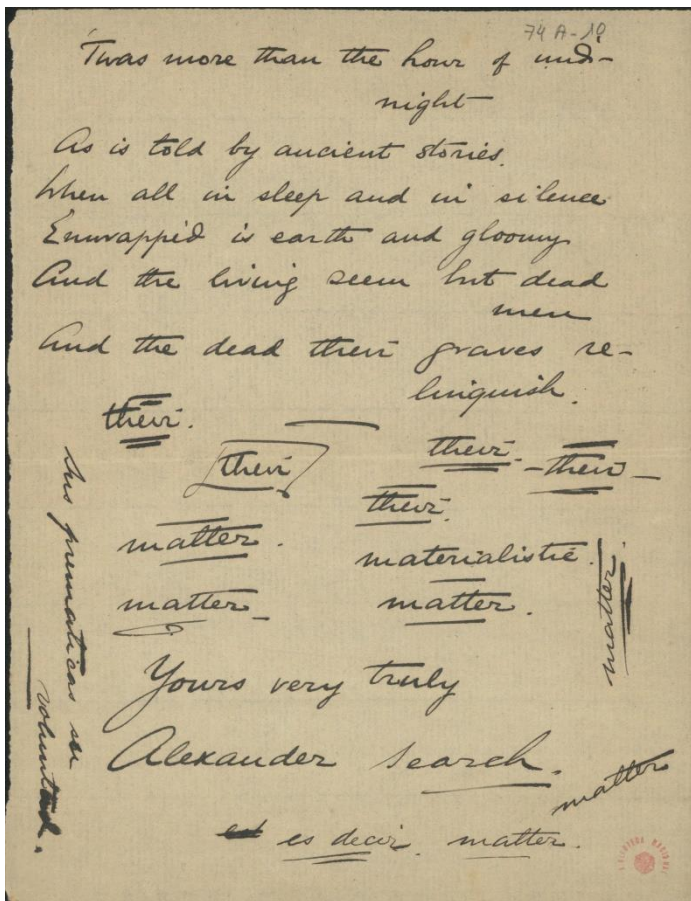 74 A-10
'Twas more than the hour of mid-
night
As is told by ancient stories.
When all in sleep and in silence
Enwrappèd is earth and gloomy
And the living seem but dead
men
And the dead their graves re-
linquish.
their.
their
their. -their-
their.
matter.
materialistic.
matter
matter.
matter.
Yours very truly
Alexander Search.
matter
es decir. matter.
sus prematicas su
voluntad.
BIBLIOTECA NACIONAL